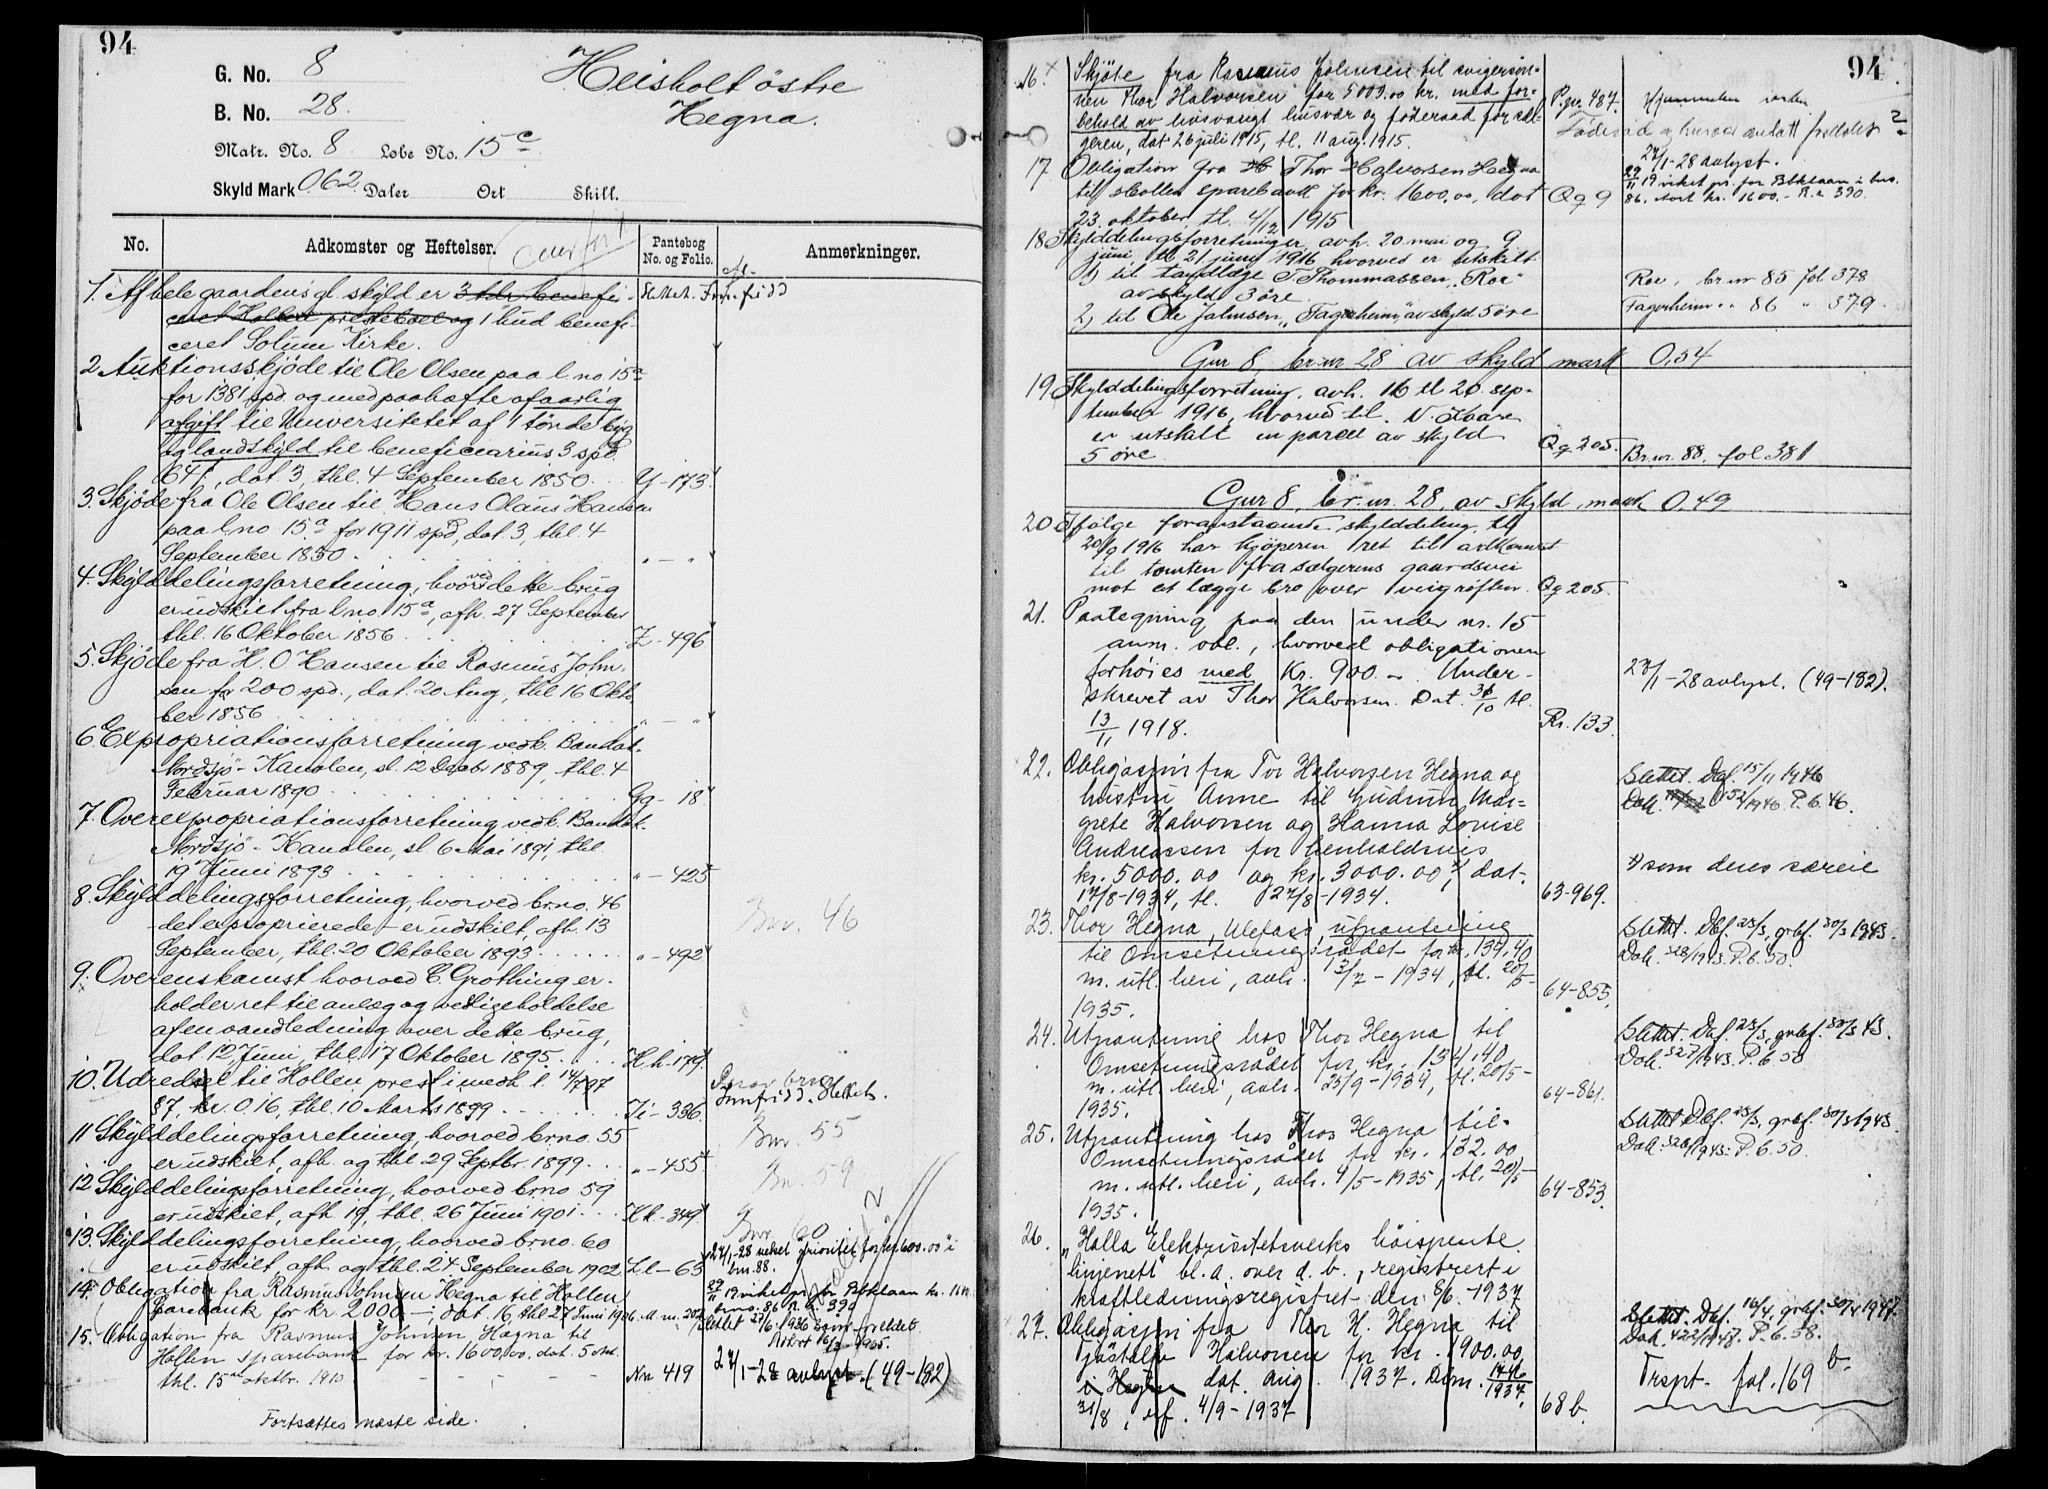 94
G. No. 8
B. No. 28
Matr. No. 8 Løbe No. 15 c
Skyld Mark 0.62 Daler Ort Skill.
Heisholt östre
Hegna.
No. Adkomster og Heftelser. Pantebog No. og Folio. Anmerkninger.
1. Af hele gaardens gl. skyld er 3 tdr benefi-
ceret Hollen prestebol og 1 hud benefi-
ceret Solum Kirke.
2. Auktionsskjöde til Ole Olsen paa l. no. 15a
for 1381 spd. og med paahæfte af aarlig
afgift til Universitetet af 1 tönde byg
og landskyld til beneficiarius 3 spd.
64 f, dat. 3, thl. 4 September 1850. Y - 173.
3. Skjöde fra Ole Olsen til Hans Olaus Hansen
paa l. no 15a for 1911 spd, dat. 3, thl. 4
September 1850. " - "
4. Skylddelingsforretning, hvorved dette brug
er udskilt fra l. no. 15a, afh. 27 September
thl. 16 Oktober 1856. Z - 496
5. Skjöde fra H. O. Hansen til Rasmus John-
sen for 200 spd., dat. 20 Aug, thl. 16 Okto-
ber 1856 " - "
6. Expropriationsforretning vedk. Bandak-
Nordsjö-Kanalen, sl. 12 Decbr 1889, thl. 4
Februar 1890 Gg - 18
7. Overexpropriationsforretning vedk. Bandak-
Nordsjö-Kanalen, sl. 6 Mai 1891, thl.
19 Juni 1893 " - 425
8. Skylddelingsforretning, hvorved br. no. 46
- det exproprierede - er udskilt, afh. 13
September, thl. 20 Oktober 1893 " - 492
Bnr. 46
9. Overenskomst hvorved C. Grothing er-
holder ret til anlæg og vedligeholdelse
af en vandledning over dette brug,
dat 12 Juni, thl. 17 Oktober 1895. Hh - 179
10. Udredsel til Hollen prest i medh. l. 14/7 97
§7, kr. 0.16, thl. 10 Marts 1899 Ii - 336.
11. Skylddelingsforretning, hvorved br. no. 55
er udskilt, afh. og thl. 29 Septbr. 1899. " - 455
Bnr. 55
12. Skylddelingsforretning, hvorved br. no 59
er udskilt, afh 19, thl. 26 Juni 1901. Kk - 349
Bnr. 59
13. Skylddelingsforretning, hvorved br. no. 60
er udskilt, afh. og thl. 24 September 1902 Ll - 63
Bnr. 60
27/1-28 veket prioritet for kr 600.00 i
bnr. 88.
14. Obligation fra Rasmus Johnsen Hegna til Hollen
Sparebank for kr 2000 -, dat. 16, thl. 27 Juni 1906. Mm. 202
15. Obligation fra Rasmus Johnsen Hegna til
Hollen sparebank for kr. 1600,00, dat. 5 okt.
thl. 15de oktbr. 1910 Nn 419
27/1-28 avlyst. (49-182)
Fortsættes næste side.
94
16. Skjöte fra Rasmus Johnsen til svigersön-
nen Thor Halvorsen for 5000.00 kr. med for-
behold av livsvarigt husvær og föderaad for sel-
geren, dat 26 juli 1915, tl. 11 aug. 1915. Pp. 487.
17. Obligation fra Thor Halvorsen Hegna
til Hollen sparebank for kr. 1600,00, dat
23. oktober, tl. 4/12 1915 Qq 9
27/1-28 avlyst.
18. Skylddelingsforretninger avh. 20 mai og 9
juni, tl. 21 juni 1916 hvorved er utskilt
1) til tandlæge T Thommassen, "Roe"
av skyld 3 öre Roe, br. nr 85 fol 378
2) til Ole Johnsen, "Fagerheim", av skyld 5 öre Fagerheim " 86 " 379.
Gnr 8, br. nr. 28 av skyld mark 0.54
19. Skylddelingsforretning, avh. 16 tl 20. sep-
tember 1916, hvorved til N. Haave
er utskilt en parcel av skyld
5 öre. Qq 205. Br. nr. 88. fol 381
Gnr 8, br. nr. 28, av skyld mark 0.49
20. Ifölge foranstaaende skylddeling, tl
20/9 1916 har kjöperen ret til adkomst
til tomten fra sælgerens gaardsvei
mot at lægge bro over veigröften. Qq 205.
21. Paategning paa den under nr. 15
anm. obl., hvorved obligationen
forhöies med Kr. 900.-. Under-
skrevet av Thor Halvorsen. Dat. 31/10 tl.
13/11 1918. Rr. 133.
27/1-28 avlyst. (49-182).
22. Obligasjon fra Tor Halvorsen Hegna og
hustru Anne til Gudrun Mar-
grete Halvorsen og Hanna Lovise
Andreassen for henholdsvis
kr. 5000.00 og kr. 3000.00, x) dat.
17/8-1934, tl. 27/8-1934. 63-969.
Slettet. Dbf. 15/11 1946
Dok. 1152/1946. P. 6. 46.
x) som deres særeie
23. Thor Hegna, Ulefoss, utpantning
til Omsetningsrådet for kr. 134,40
m. utl. heri, avh. 13/7-1934, tl. 20/5-
1935. 64-855.
Slettet. Dbf. 28/3, grbf. 30/3 1943.
Dok. 528/1943. P. 6. 50.
24. Utpantning hos Thor Hegna til
Omsetningsrådet for kr. 134,40
m. utl. heri, avh. 25/9-1934, tl. 20/5-
1935. 64-861.
Slettet. Dbf. 28/3, grbf. 30/3 43.
Dok. 527/1943. P. 6. 50
25. Utpantning hos Thor Hegna til
Omsetningsrådet for kr. 132.00
m. utl. heri, avh. 4/5-1935, tl. 20/5-
1935. 64-853.
Slettet Dbf. 28/3, grbf. 30/3 1943.
Dok. 526/1943. P. 6. 50.
26. "Holla Elektrisitetsverks höispente
linjenett" bl. a. over d. b., registrert i
kraftledningsregistret den 8/6.-1937
27. Obligasjon fra Thor H. Hegna til
Tjöstolv Halvorsen for kr. 1900.00
i Hegna dat. aug. 1937. Dbm. 1446/1937.
31/8, erf. 4/9-1937 68 b.
Slettet. Dbf. 16/4, grbf. 30/4 1947.
Dok. 422/1947. P. 6. 58.
Trspt. fol. 169 b.